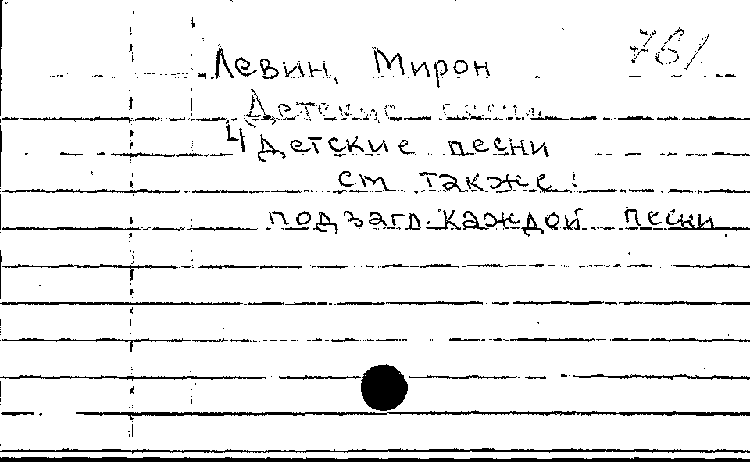 761
Левин, Мирон
Детские песни
4 Детские песни
см также:
под загл. каждой песни